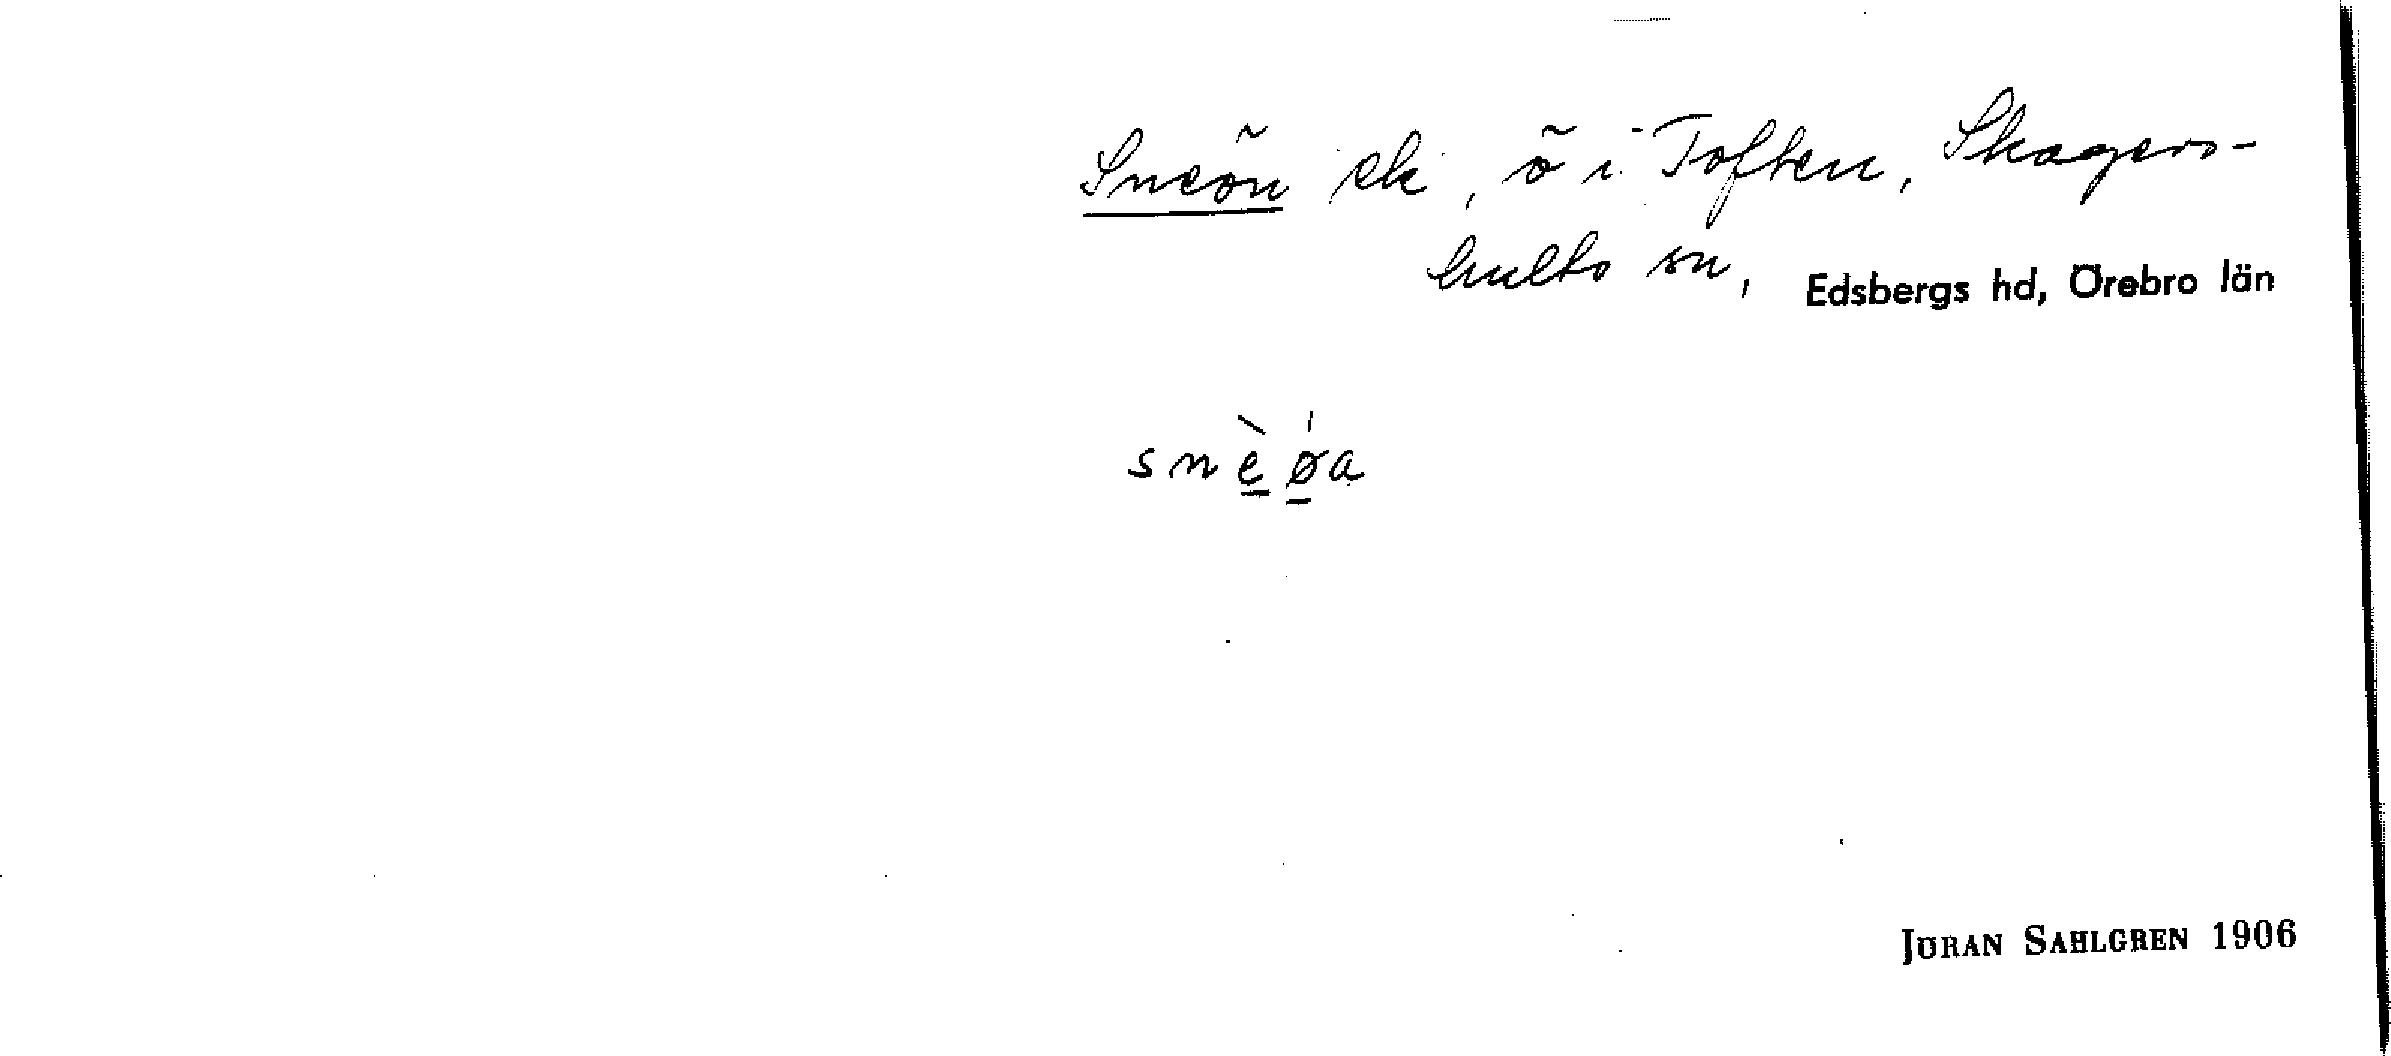 Sneön ek, ö i Toften, Skagers-
hults sn, Edsbergs hd, Örebro län
snè̲ǿ̲a
JÖRAN SAHLGREN 1906